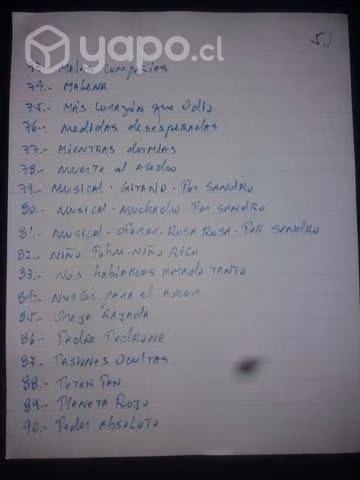 yapo.cl
5.)
73.- Malas compañias
74.- MALENA
75.- Más corazón que odio
76.- Medidas desesperadas
77.- Mientras dormias
78.- Muerte al acecho
79.- Musical. Gitano. Por Sandro
80.- Musical. Muchacho. Por Sandro
81.- Musical. Rosa Rosa. Por Sandro
82.- Niño Pobre. Niño Rico
83.- Nos habiamos amado tanto
84.- para el amor
85.- Oveja
86.- Padre Padrone
87.- Pasiones ocultas
88.- Peter Pan
89.- Planeta Rojo
90.- Poder absoluto